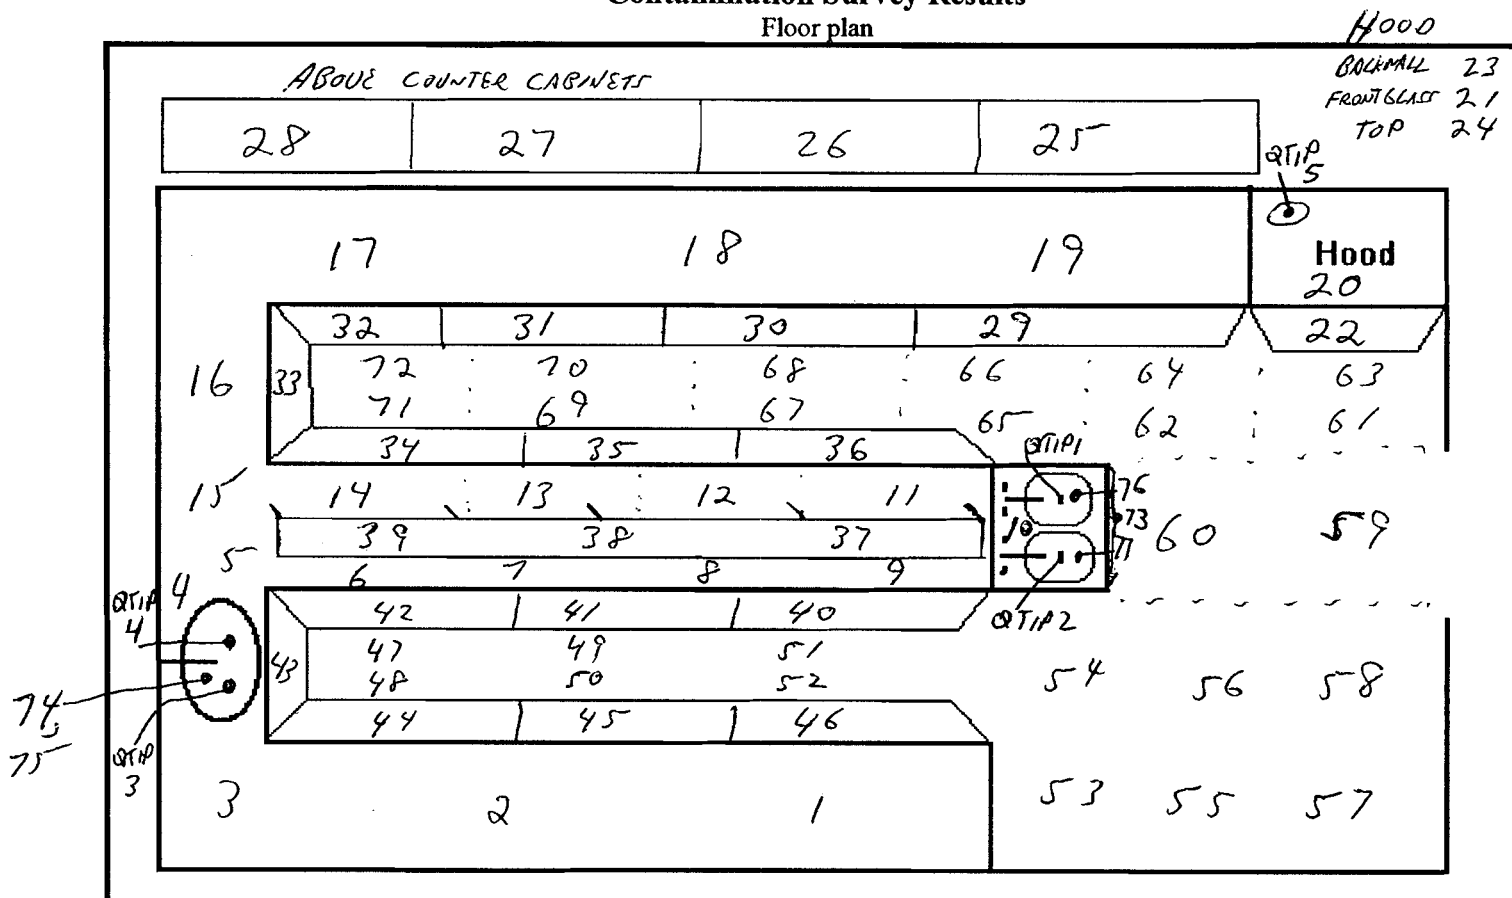 Contamination Survey Results
Floor plan
HOOD
BACKWALL 23
FRONTGLASS 21
TOP 24
ABOVE COUNTER CABINETS
28 27 26 25
QTIP 5
17 18 19 Hood
20
32 31 30 29 22
16 33 72 70 68 66 64 63
71 69 67 65 62 61
34 35 36 QTIP1
15 14 13 12 11 76
39 38 37 10 73 60 59
5 77
6 7 8 9
QTIP 4 4
42 41 40 QTIP2
43 47 49 51
48 50 52 54 56 58
74,
75
44 45 46
QTIP 3
3 2 1 53 55 57